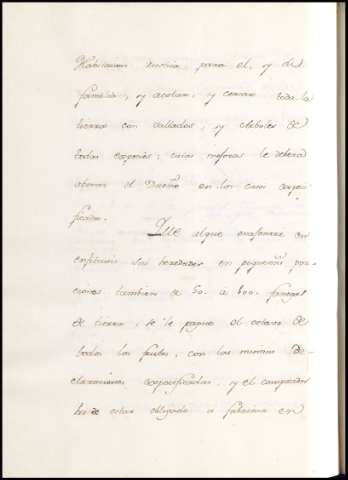 Habitacion para el, y su
familia, y acotar, y cerrar toda la
tierra con vallados, y Arboles de
todas especies; cuias mejoras le deberá
abonar el Dueño en los casos expe-
sificados.
Que al que en
sus heredades en pequeñas por-
ciones tambien de 50. á fanegas
de tierra, se le pague el octavo de
todos los frutos, con las mismas De-
claraciones expecificadas, y el comprador
ha de estar obligado á en